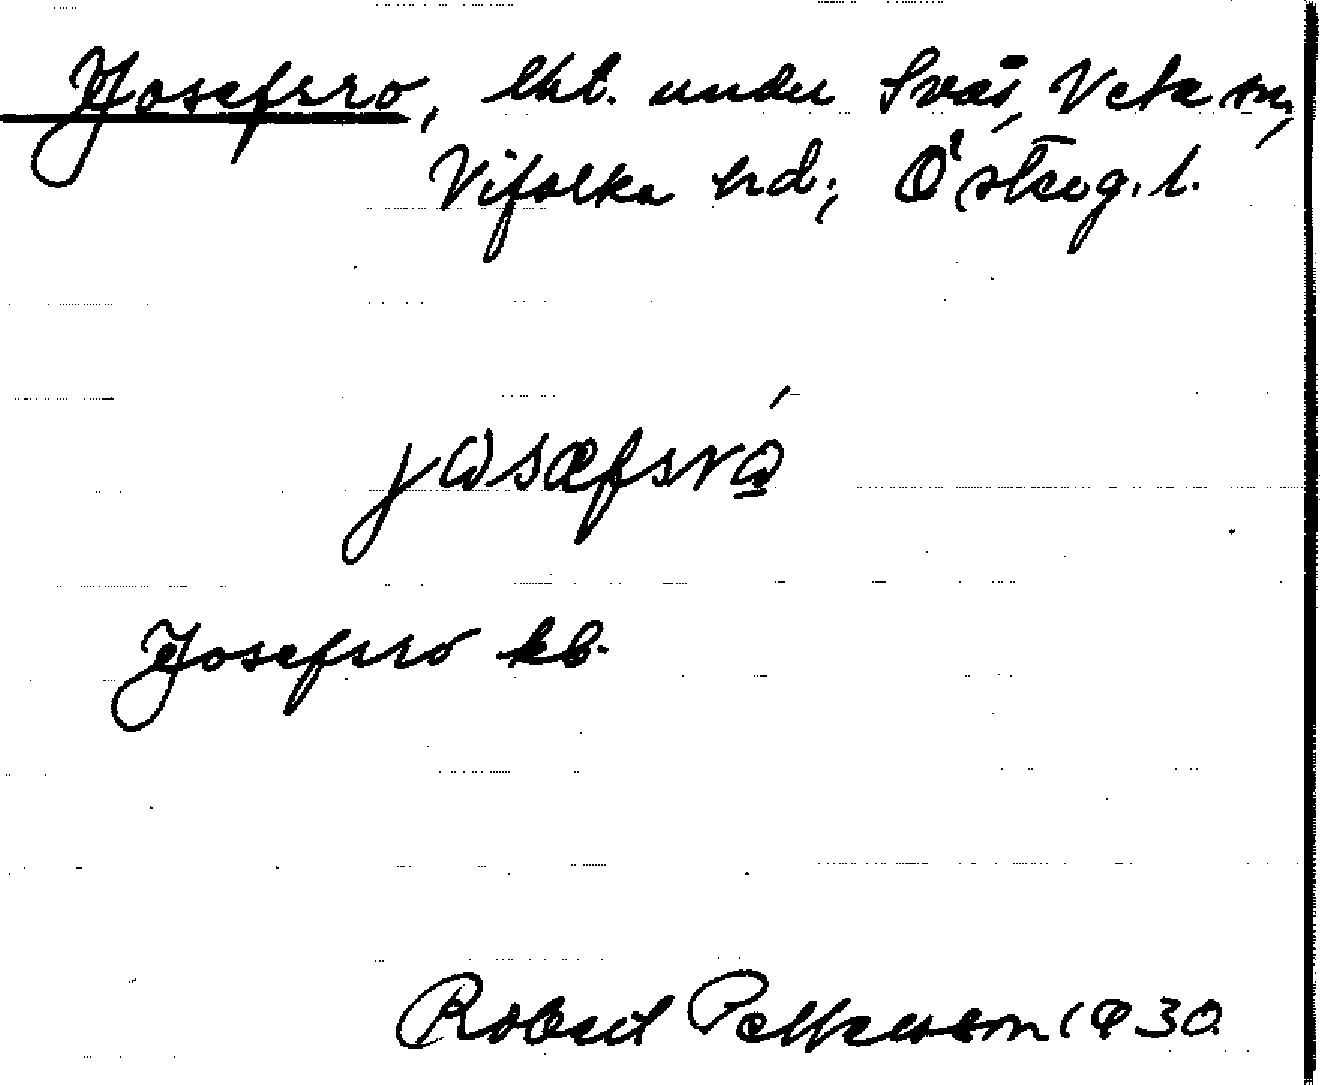 Josefsro, lht. under Svär, Veta sn,
Vifolka hd., Östergöt. l.
josefsrọ́
Josefsro kb.
Robert Pettersson 1930.